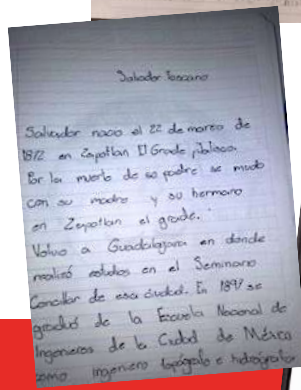 Salvador Toscano
Salvador nacio el 22 de marzo de
1872 en Zapotlan El Grade jalisco.
Por la muerte de su padre se mudo
con su madre y su hermano
en Zapotlan el grade.
Volvio a Guadalajara en donde
realizó estudios en el Seminario
Conciliar de esa ciudad. En 1897 se
graduó de la Escuela Nacional de
Ingenieros de la Ciudad de México
como ingeniero topógrafo e hidrógrafo